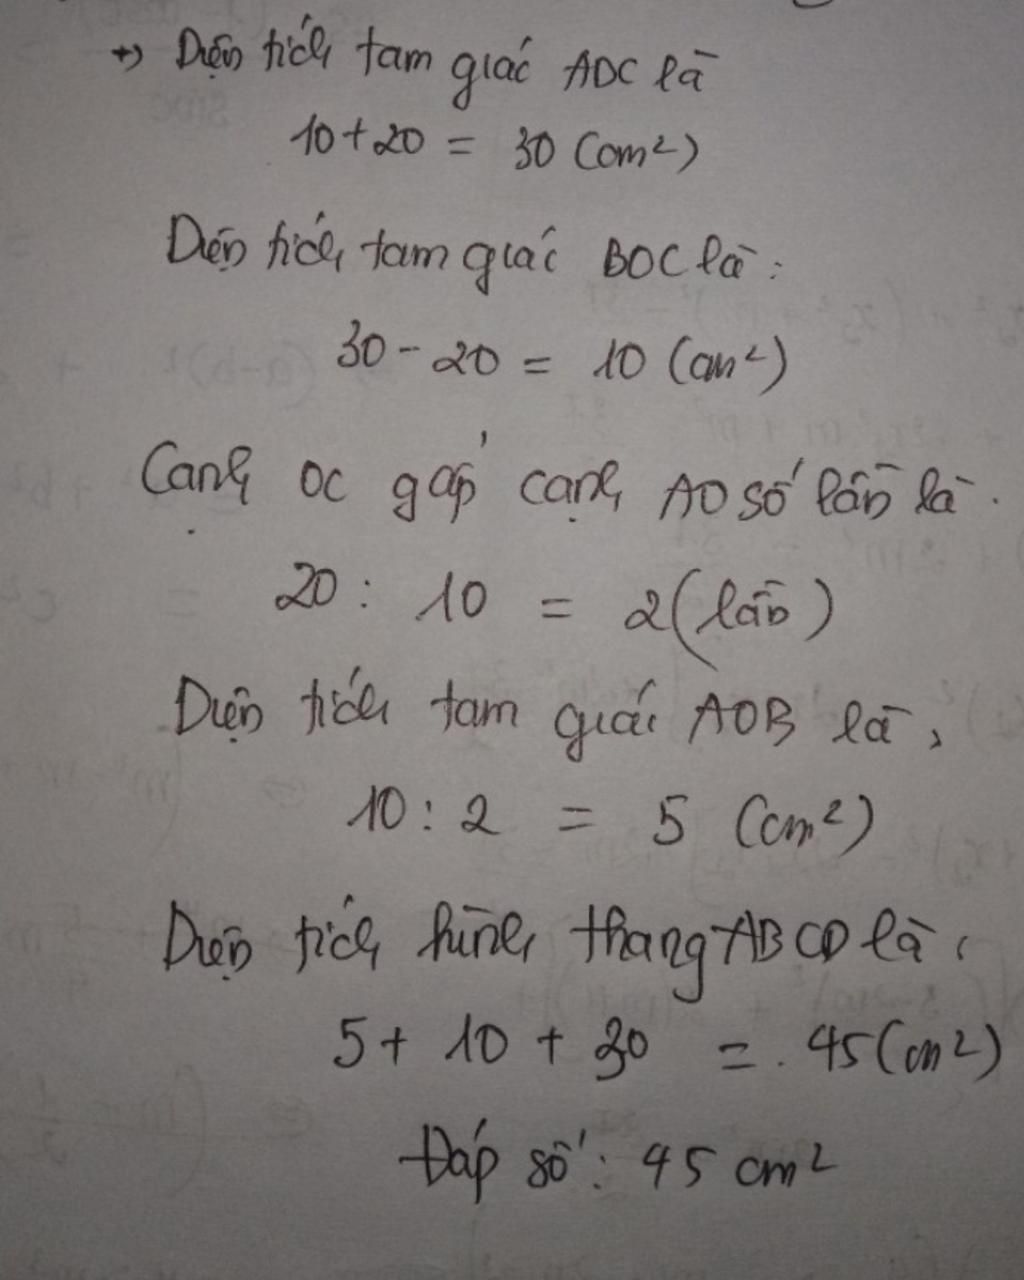 +) Diện tích tam giác ADC là
10 + 20 = 30 (cm²)
Diện tích tam giác BOC là:
30 - 20 = 10 (cm²)
Cạnh OC gấp cạnh AO số lần là.
20 : 10 = 2 (lần)
Diện tích tam giác AOB là,
10 : 2 = 5 (cm²)
Diện tích hình thang ABCD là:
5 + 10 + 30 = 45 (cm²)
Đáp số: 45 cm²